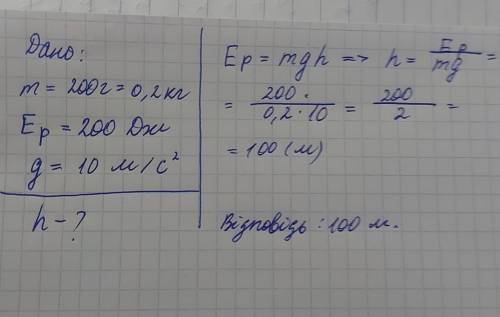 Дано:
m = 200г = 0,2 кг
Ep = 200 Дж
g = 10 м/с²
h - ?
Ep = mgh => h = Ep/mg =
= 200/0,2·10 = 200/2 =
= 100 (м)
Відповідь: 100 м.